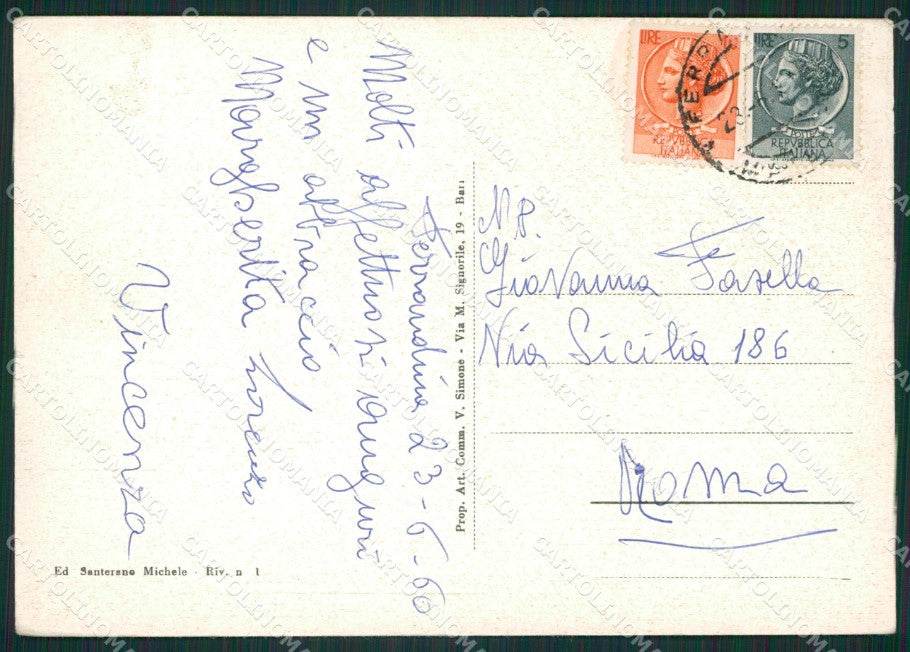 Ferrandina 23-6-60
Molti affettuosi auguri
e un abbraccio
Margherita Lorenzo
Vincenza
Ed Santerano Michele - Riv. n 1
Prop. Art. Comm. V. Simone - Via M. Signorile, 19 - Bari
LIRE
POSTE
REPVBBLICA
ITALIANA
LIRE 5
POSTE
REPVBBLICA
ITALIANA
FERRA
N.8.
Giovanna Fasella
Via Sicilia 186
Roma
CARTOLINOMANIA